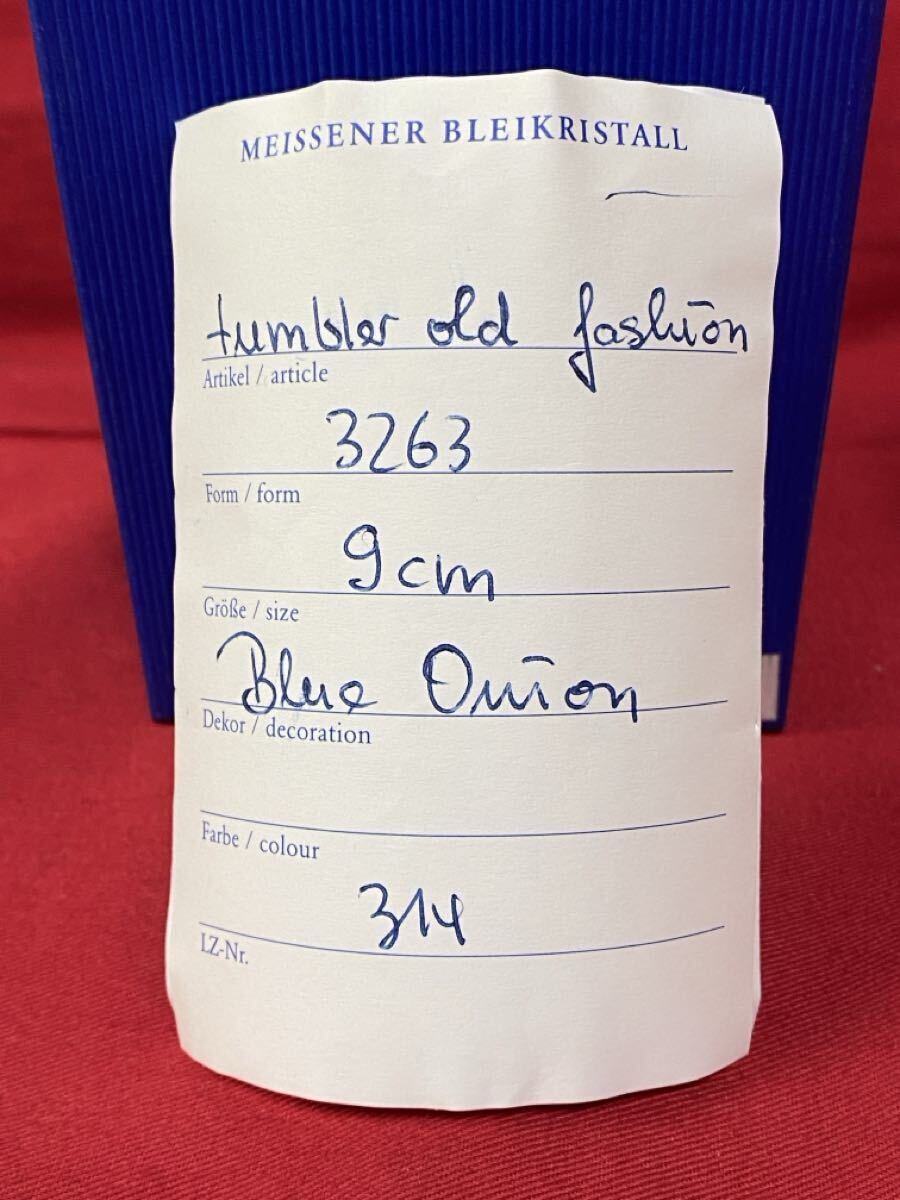 MEISSENER BLEIKRISTALL
tumbler old fashion
Artikel / article
3263
Form / form
9cm
Größe / size
Blue Onion
Dekor / decoration
Farbe / colour
314
LZ-Nr.